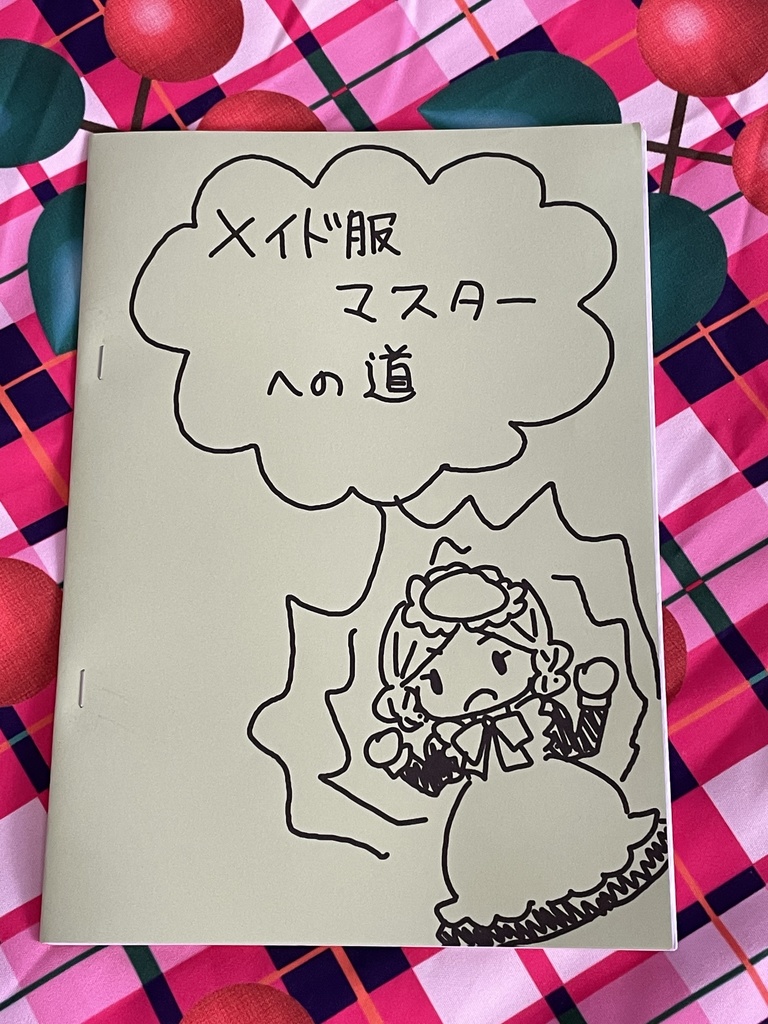 メイド服
マスター
への道